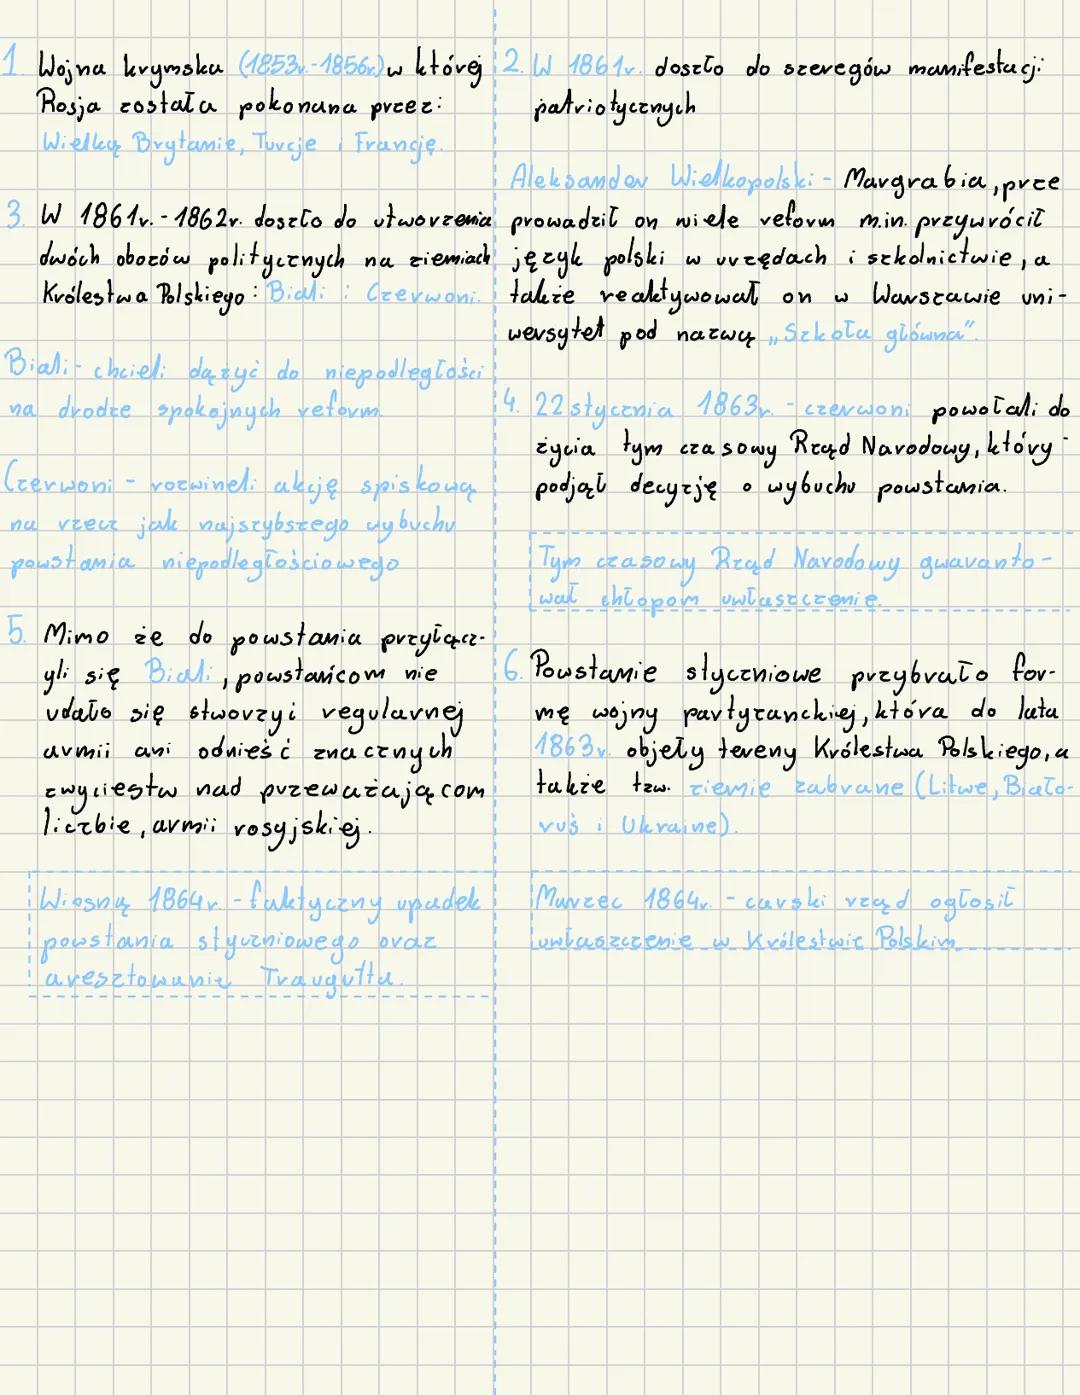 1. Wojna krymska (1853r.-1856r.) w której
Rosja została pokonana przez:
Wielką Brytanie, Turcje i Francję.
2. W 1861r. doszło do szeregów manifestacji
patriotycznych
Aleksander Wielkopolski - Margrabia, prze
prowadził on wiele reform m.in. przywrócił
język polski w urzędach i szkolnictwie, a
także reaktywował on w Warszawie uni-
wersytet pod nazwą „Szkoła główna".
3. W 1861r. - 1862r. doszło do utworzenia
dwóch obozów politycznych na ziemiach
Królestwa Polskiego: Biali i Czerwoni.
Biali - chcieli dążyć do niepodległości
na drodze spokojnych reform.
Czerwoni - rozwineli akcję spiskową
na rzecz jak najszybszego wybuchu
powstania niepodległościowego
4. 22 stycznia 1863r. - czerwoni powołali do
życia tym czasowy Rząd Narodowy, który -
podjął decyzję o wybuchu powstania.
Tym czasowy Rząd Narodowy gwaranto-
wał chłopom uwłaszczenie.
5. Mimo że do powstania przyłącz-
yli się Biali, powstańcom nie
udało się stworzyi regularnej
armii ani odnieść znacznych
zwyciestw nad przeważającom
liczbie, armii rosyjskiej.
Wiosną 1864r. - faktyczny upadek
powstania styczniowego oraz
aresztowanie Traugutta.
6. Powstanie styczniowe przybrało for-
mę wojny partyzanckiej, która do lata
1863r. objeły tereny Królestwa Polskiego, a
także tzw. ziemie zabrane (Litwe, Biało-
ruś i Ukraine).
Marzec 1864r. - carski rząd ogłosił
uwłaszczenie w Królestwie Polskim.